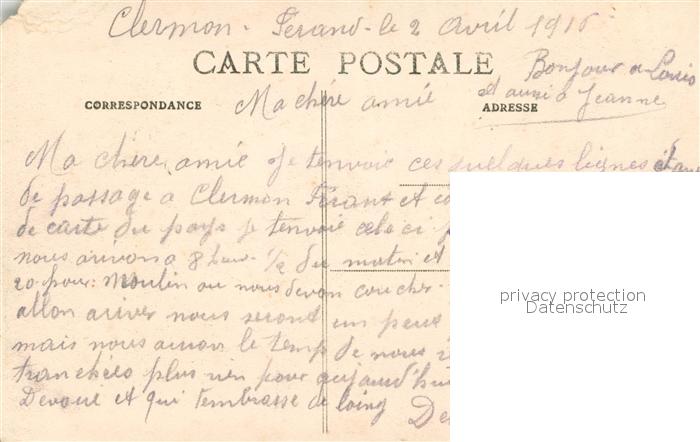 Clermon-Ferand-le 2 avril 1916
CARTE POSTALE
Bonjour a Louis
et aussi a Jeanne
CORRESPONDANCE
Ma chére amie
ADRESSE
Ma chére amie Je tenvoie ces quelques lignes etant
de passage a Clermon Ferant et
de carte du pays je tenvoie cele ci
nous arivons a 8 heur 1/2 du matin et
20 pour Moulin ou nous devon coucher.
allon ariver nous seront un peut
mais nous auron le temp de nous
tranchées plus rien pour aujourd'hui
Devoué et qui tembrasse de loing
privacy protection
Datenschutz